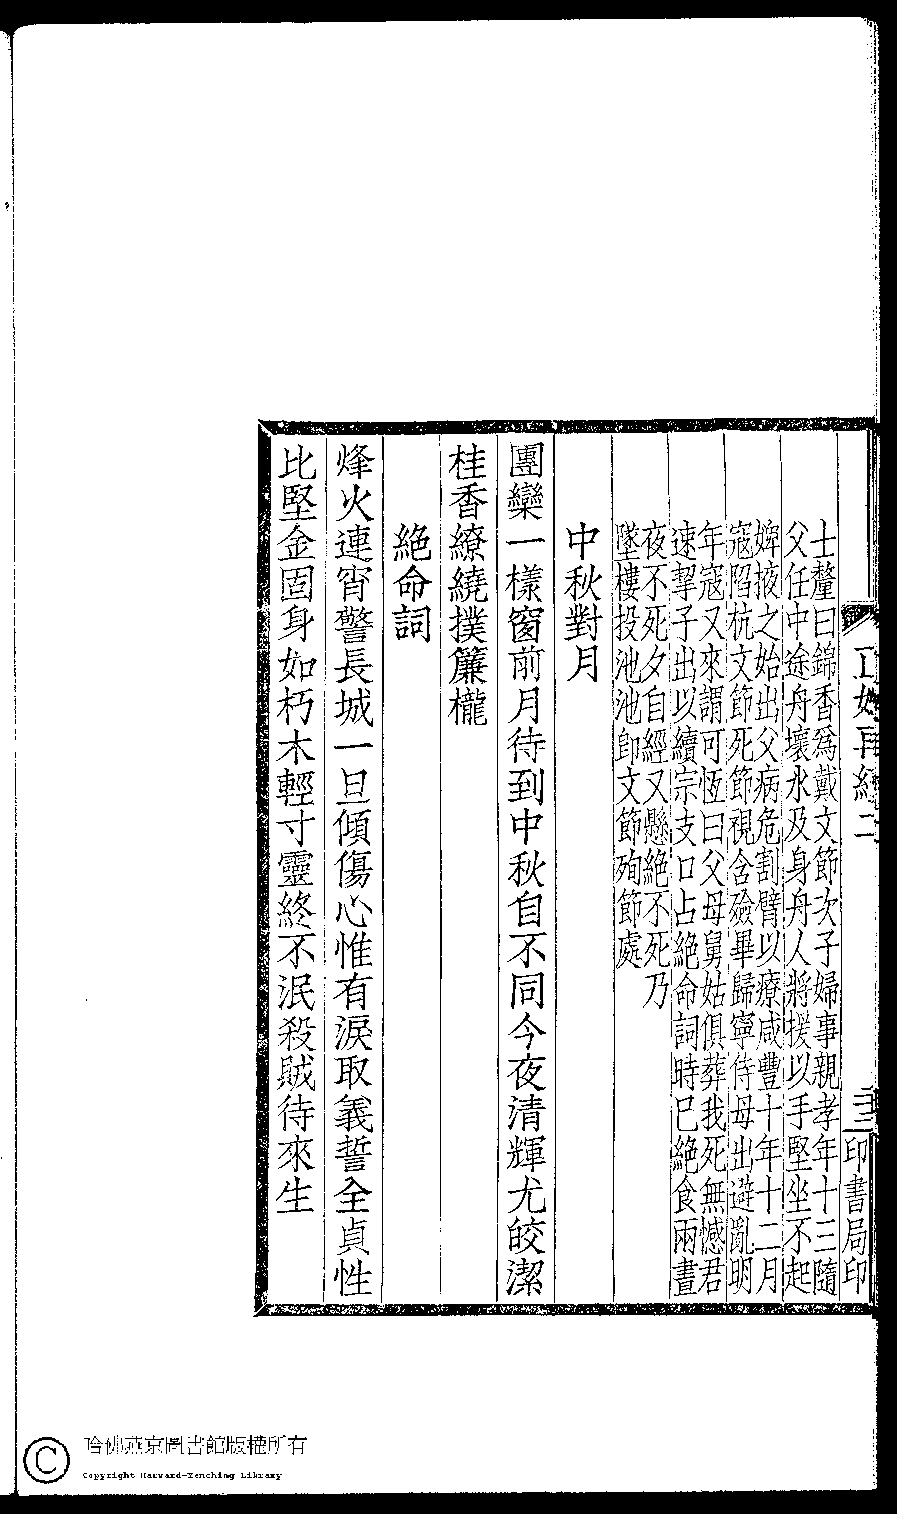 士釐曰錦香爲戴文節次子婦事親孝年十三隨
父任中途舟壞水及身舟人將援以手堅坐不起
婢掖之始出父病危割臂以療咸豐十年十二月
寇陷杭文節死節視含殮畢歸寧侍母出避亂明
年寇又來謂可恆曰父母舅姑俱葬我死無憾君
速挈子出以續宗支口占絕命詞時已絕食兩晝
夜不死夕自經又懸絕不死乃
墜樓投池池卽文節殉節處
中秋對月
團欒一樣窗前月待到中秋自不同今夜清輝尤皎潔
桂香繚繞撲簾櫳
絕命詞
烽火連宵警長城一旦傾傷心惟有淚取義誓全貞性
比堅金固身如朽木輕寸靈終不泯殺賊待來生
印書局印
哈佛燕京圖書館版權所有
Copyright Harvard-Yenching Library